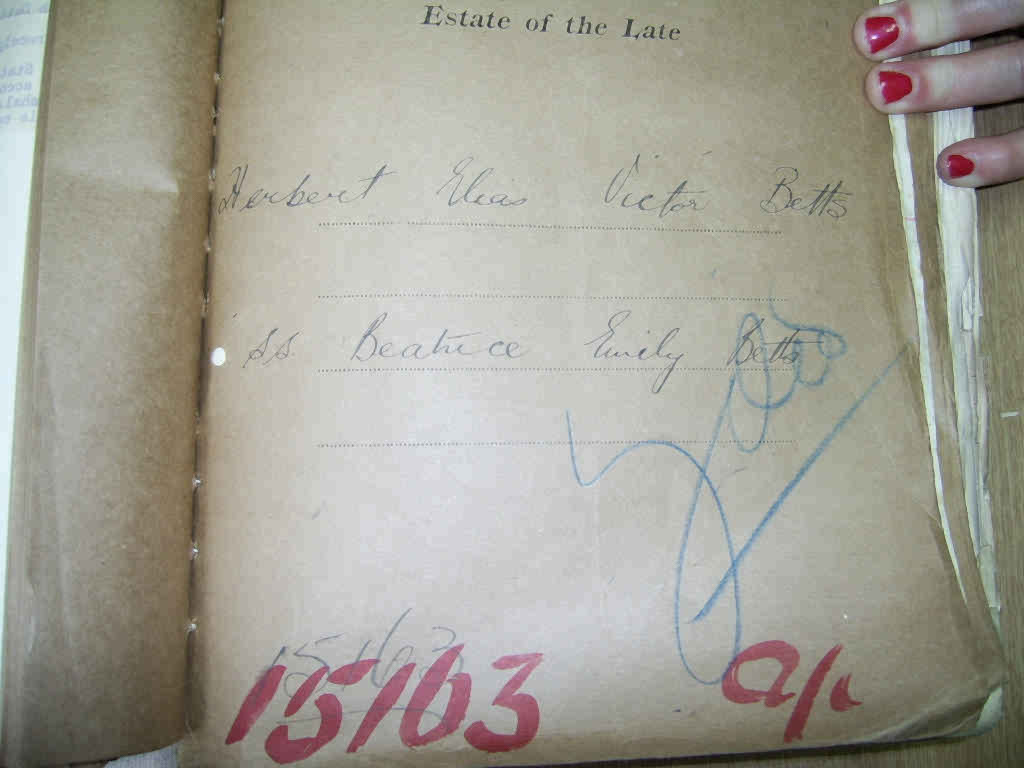 Estate of the Late
Herbert Elias Victor Betts
SS. Beatrice Emily Betts
15163
15163 a/c